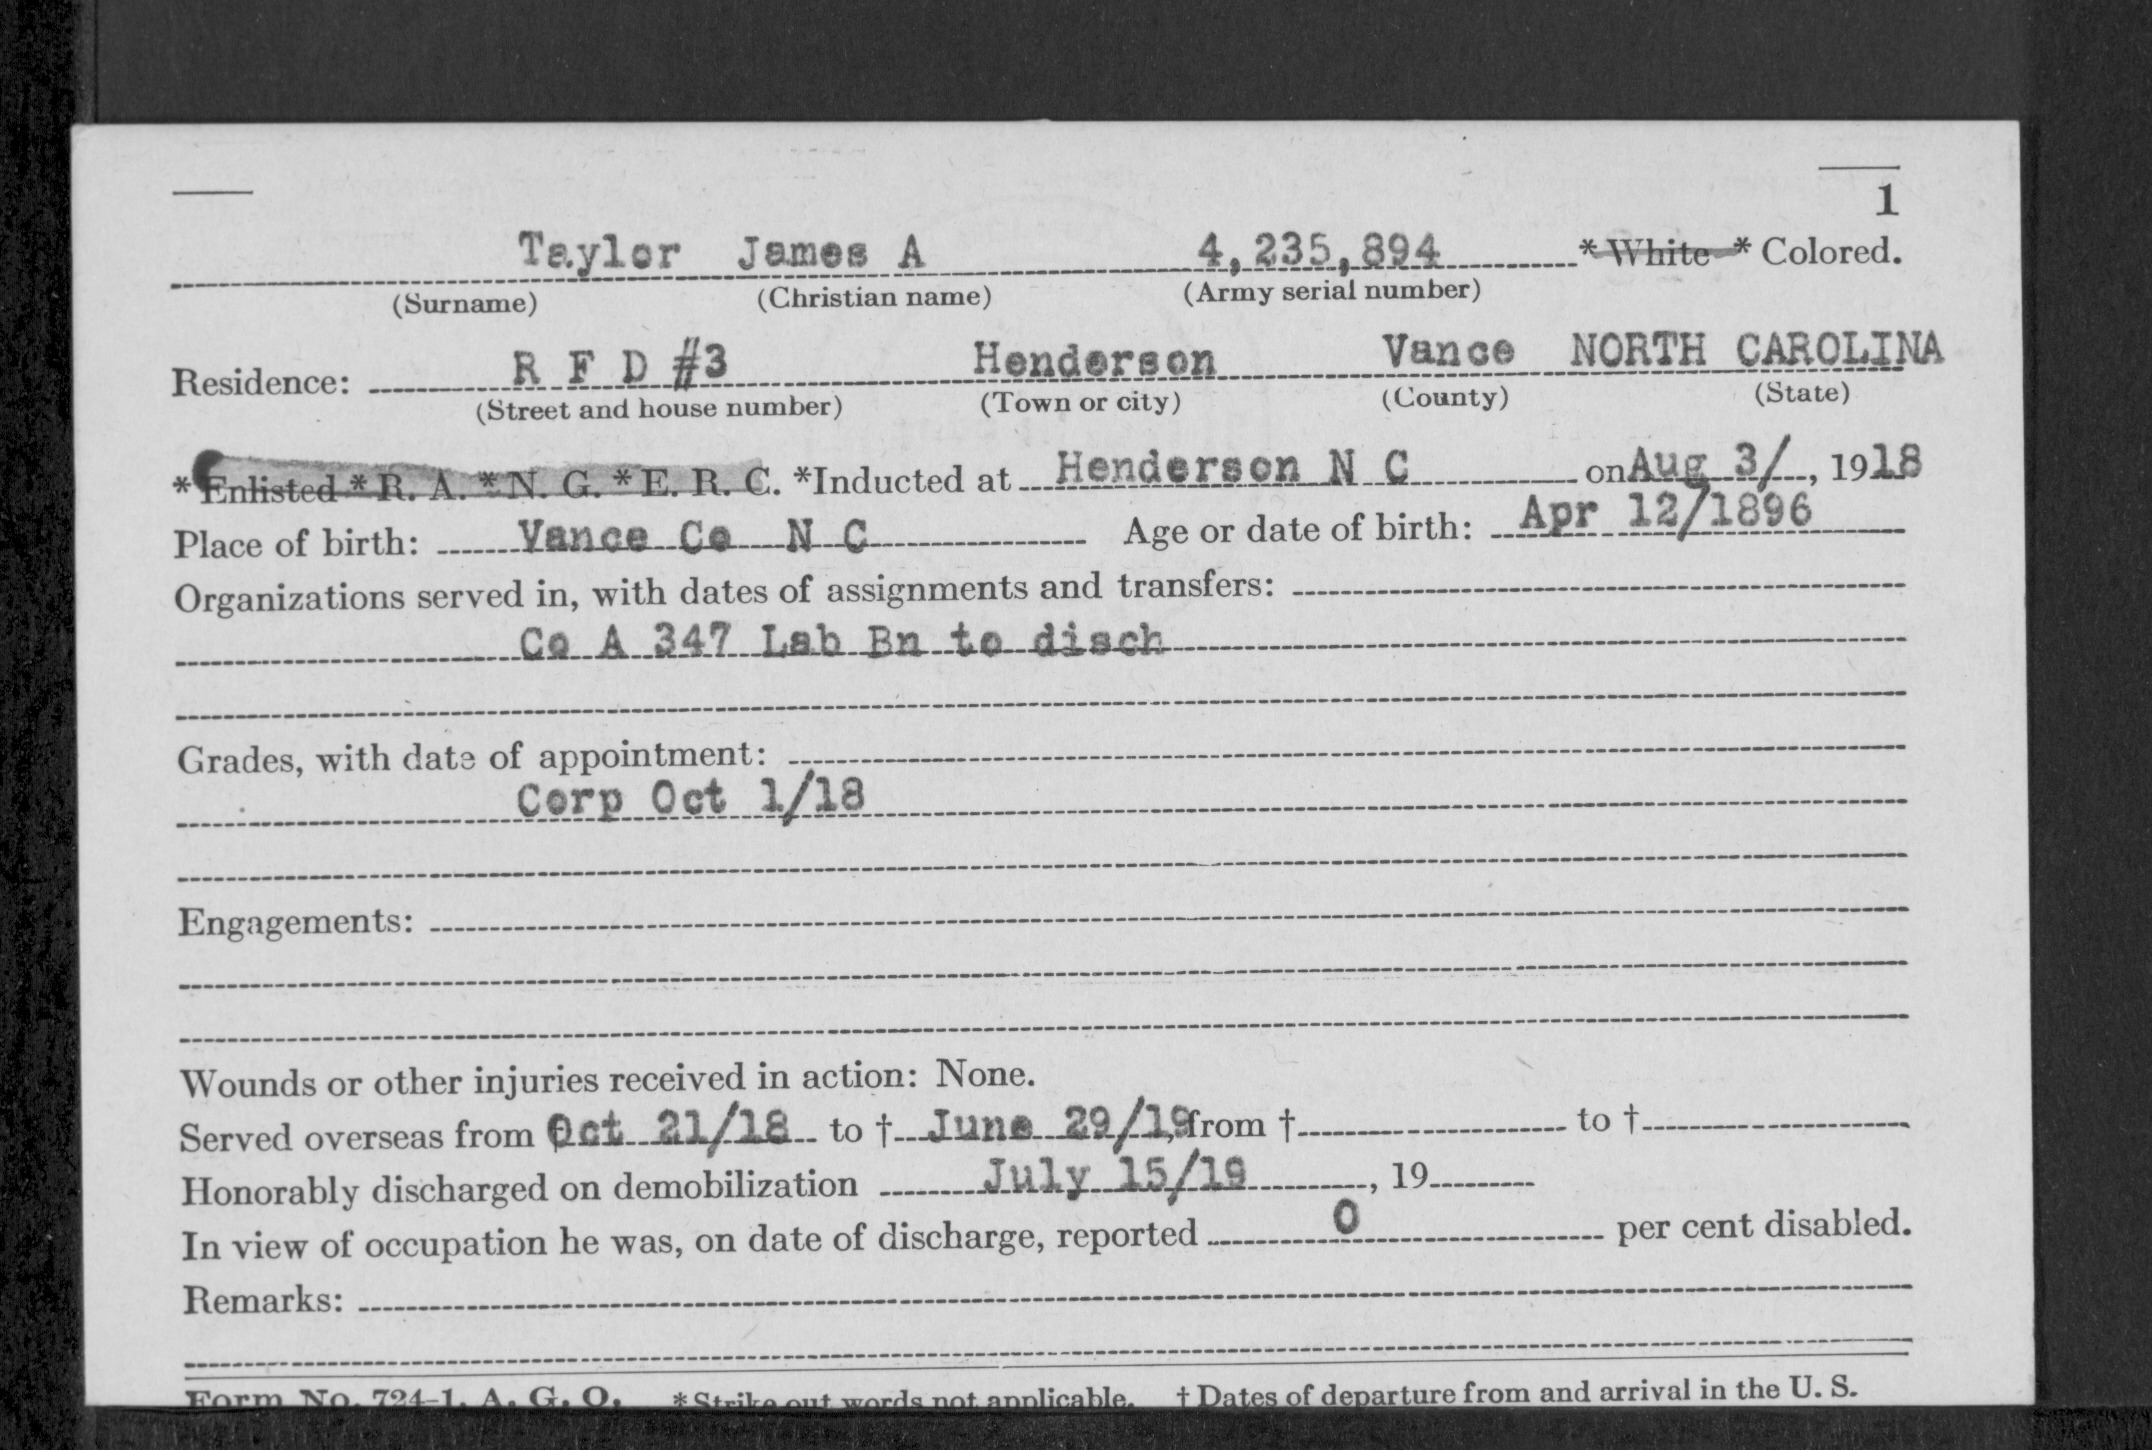 1
Taylor James A 4,235,894 * White * Colored.
(Surname) (Christian name) (Army serial number)
Residence: R F D #3 Henderson Vance NORTH CAROLINA
(Street and house number) (Town or city) (County) (State)
* Enlisted * R. A. * N. G. * E. R. C. *Inducted at Henderson N C on Aug 3/, 1918
Place of birth: Vance Co N C Age or date of birth: Apr 12/1896
Organizations served in, with dates of assignments and transfers:
Co A 347 Lab Bn to disch
Grades, with date of appointment:
Corp Oct 1/18
Engagements:
Wounds or other injuries received in action: None.
Served overseas from Oct 21/18 to † June 29/19, from † to †
Honorably discharged on demobilization July 15/19, 19
In view of occupation he was, on date of discharge, reported 0 per cent disabled.
Remarks:
Form No. 724-1, A. G. O. * Strike out words not applicable. † Dates of departure from and arrival in the U. S.